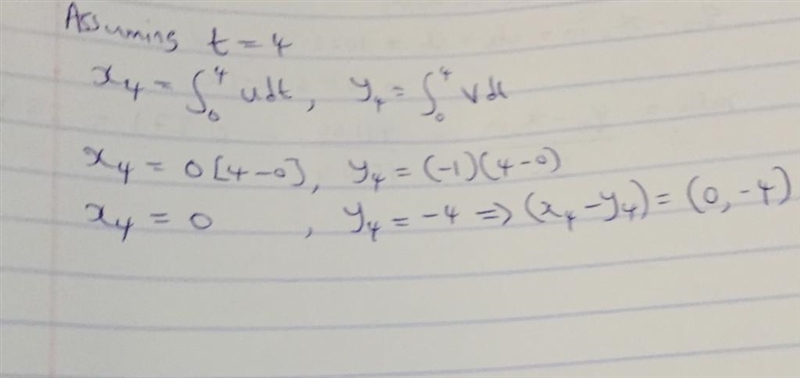 Assuming t = 4
x₄ = ∫₀⁴ u dt, y₄ = ∫₀⁴ v dt
x₄ = 0[4-0], y₄ = (-1)(4-0)
x₄ = 0 , y₄ = -4 ⇒ (x₄ - y₄) = (0, -4)